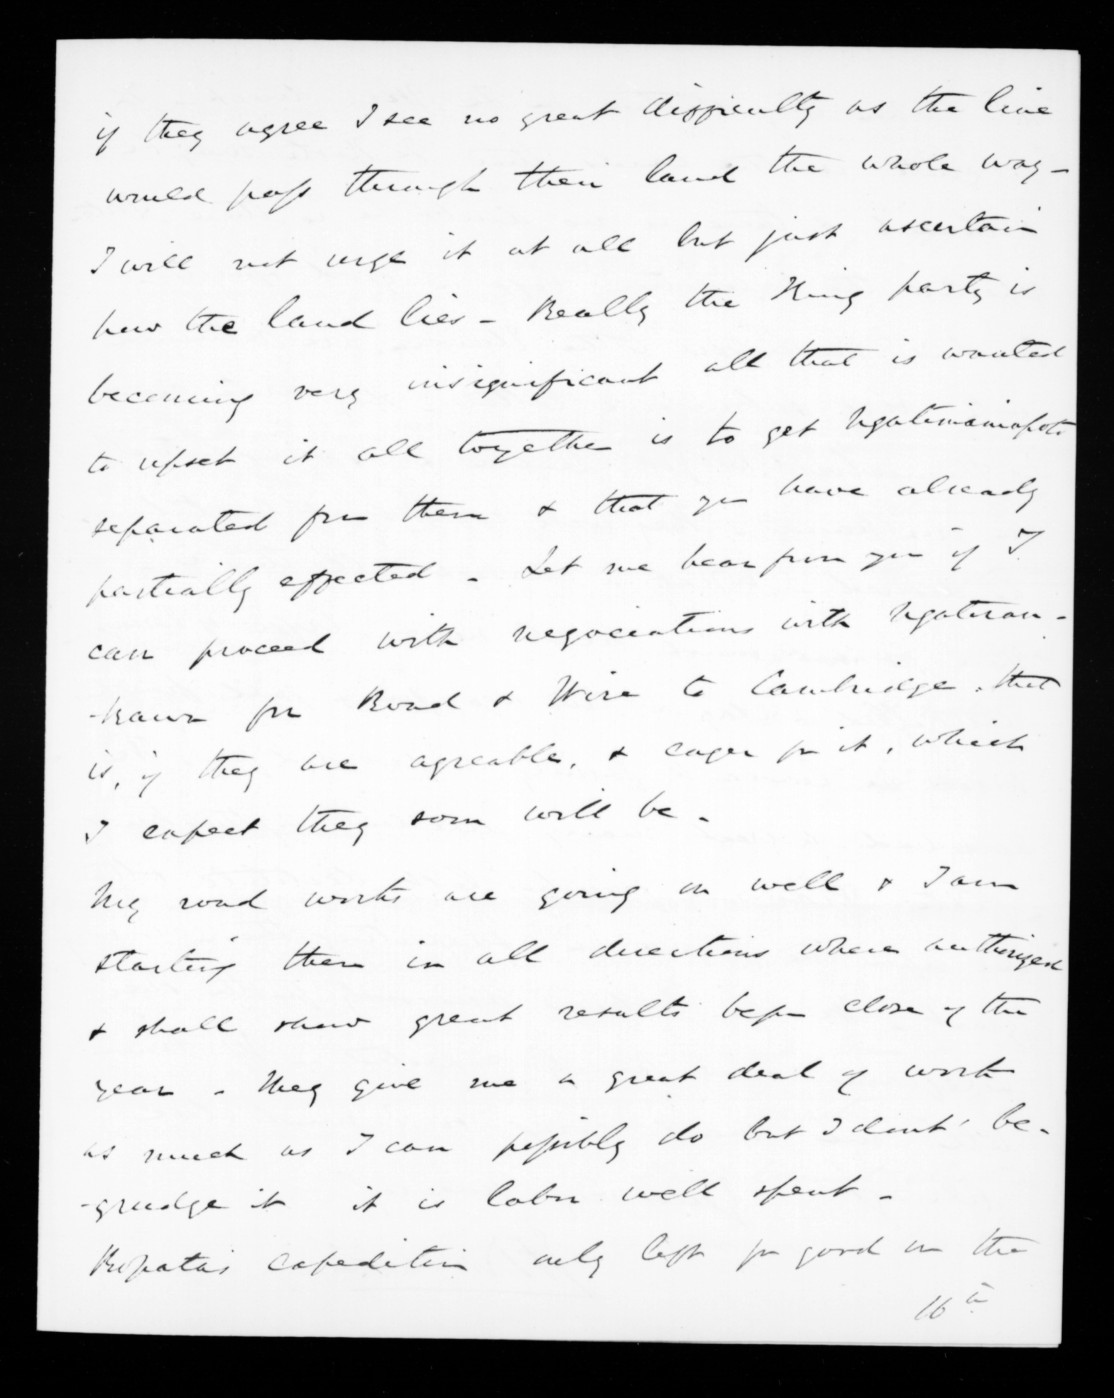 if they agree I see no great difficulty as the line
would pass through their land the whole way -
I will not urge it at all but just ascertain
how the land lies - Really the King party is
becoming very insignificant all that is wanted
to upset it all together is to get Ngatimaniapoto
separated from them & that you have already
partially effected - Let me hear from you if I
can proceed with negociations with Ngatirau-
-kawa for Road & Wire to Cambridge, that
is, if they are agreable, & eager for it, which
I expect they soon will be -
My road works are going on well & I am
starting them in all directions where authorized
& shall show great results before close of the
year - They give me a great deal of work
as much as I can possibly do but I dont' be-
-grudge it it is labor well spent -
Ropata's expedition only left for good on the
16th